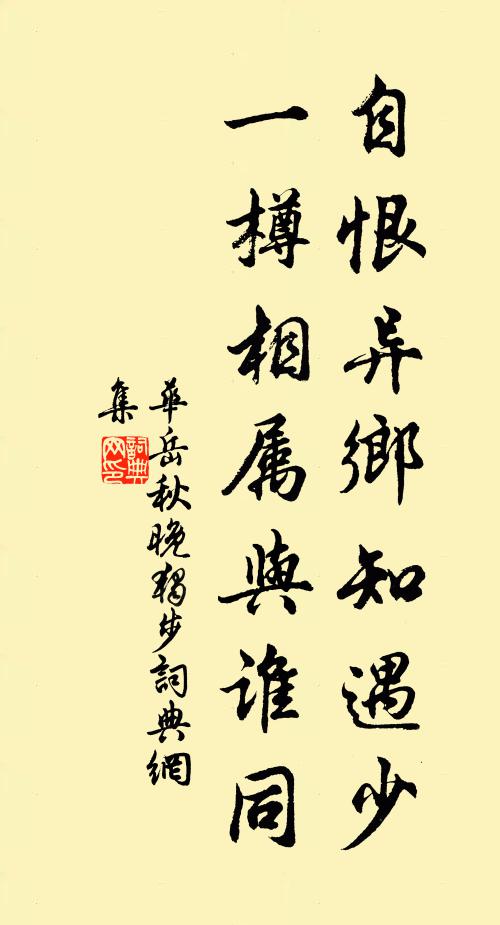 自恨异鄉知遇少
一樽相属與誰同
華岳秋晚獨步詞典網
集
詞典
网印